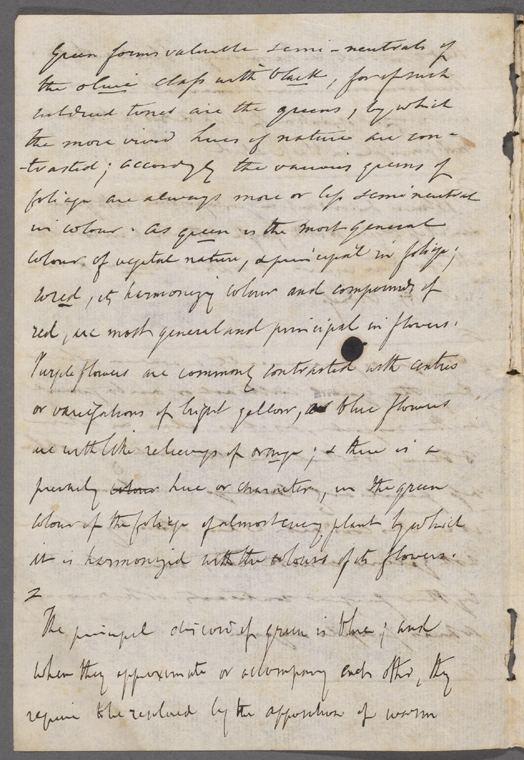 Green forms valuable semi-neutrals of
the olive class with black, for of such
subdued tones are the greens, by which
the more vivid hues of nature are con-
-trasted; accordingly the various greens of
foliage are always more or less semineutral
in colour. As green is the most general
colour of vegetal nature, & principal in foliage;
so red, its harmonizing colour and compounds of
red, are most general and principal in flowers.
Purple flowers are commonly contrasted with centres
or variegations of bright yellow, as blue flowers
are with like relievings of orange; & there is a
prevailing colour hue or character, in the green
colour of the foliage of almost every plant by which
it is harmonized with the colours of its flowers.
The principal discord of green is blue; and
when they approximate or accompany each other, they
require to be resolved by the apposition of warm